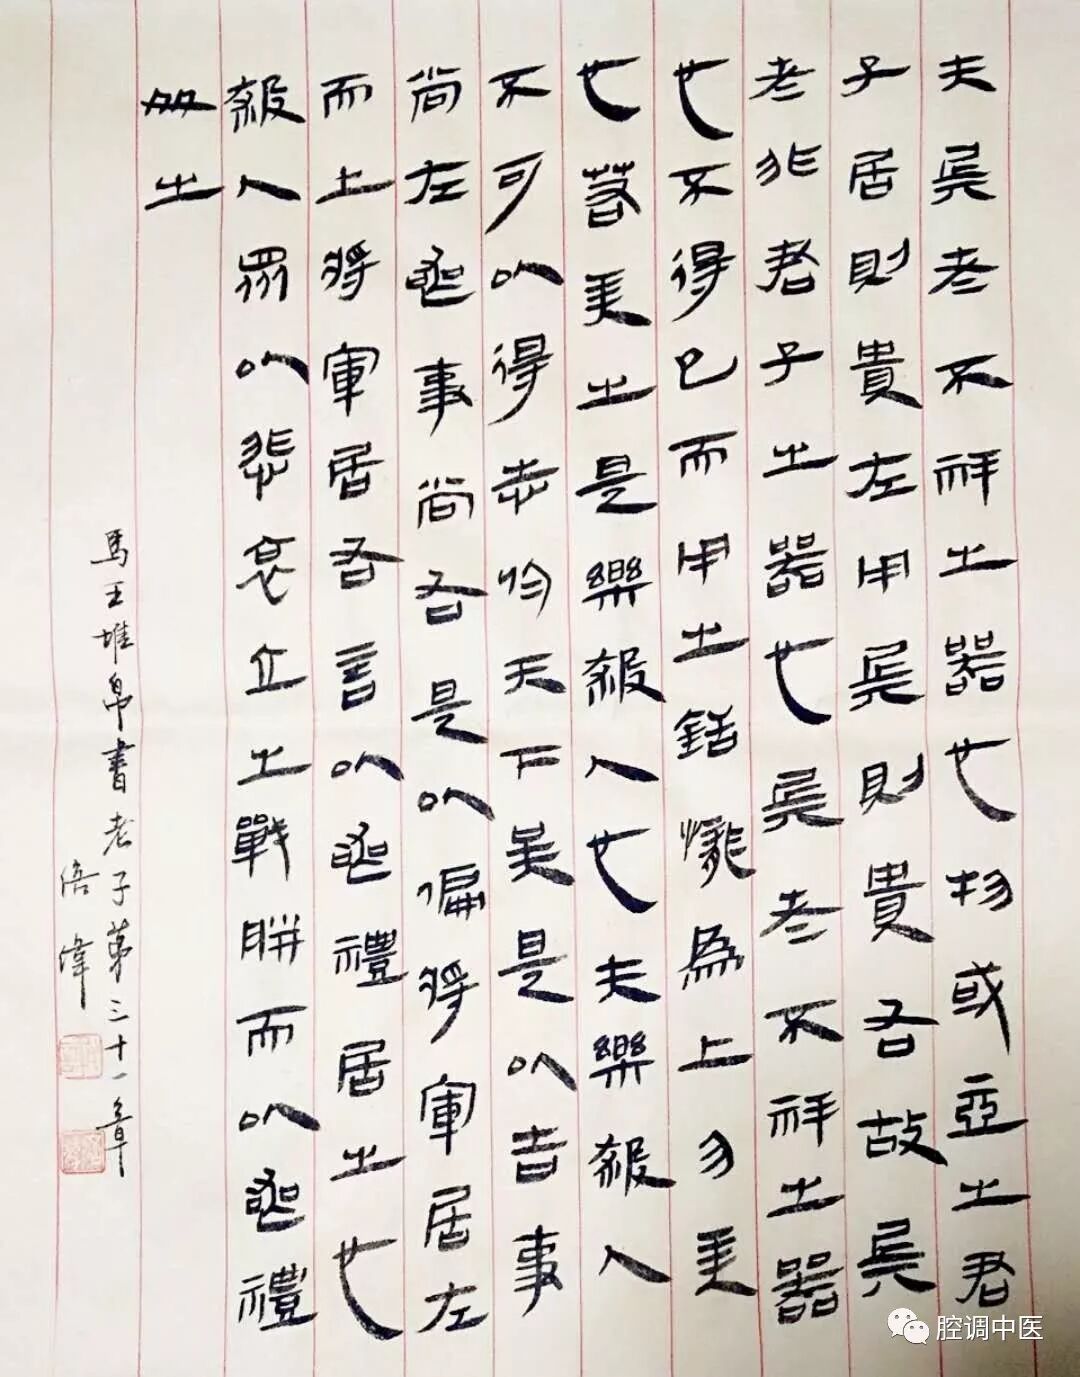 夫兵者不祥之器也物或亞之君
子居則貴左用兵則貴右故兵
者非君子之器也兵者不祥之器
也不得已而用之銛為上勿美
也若美之是樂殺人也夫樂殺人
不可以得志於天下矣是以吉事
尚左喪事尚右是以偏將軍居左
而上將軍居右言以喪禮居之也
殺人眾以悲哀立之戰勝而以喪禮
處之
馬王堆帛書老子第三十一章
腔调中医